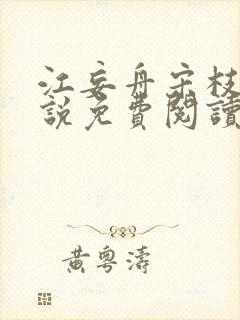 江妄舟宋枝
説免費閱讀
黃粵濤